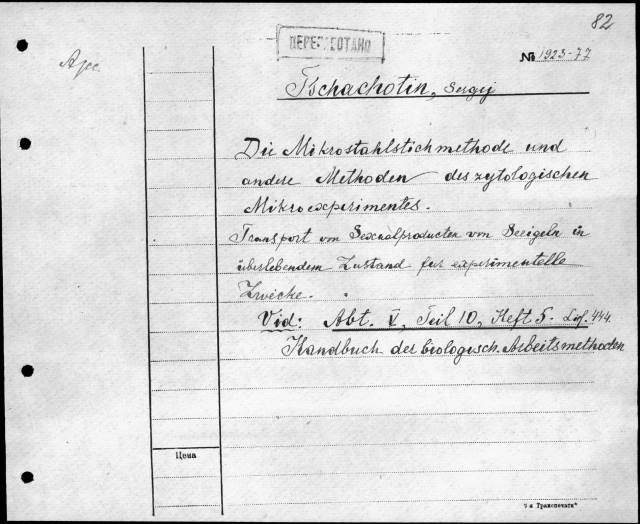 82
ПЕРЕРАБОТАНО
№ 1923-77
Tschachotin, Sergij
Die Mikrostahlstichmethode und
andere Methoden des zytologischen
Mikroexperimentes.
Transport von Sexualproducten von Seeigeln in
überlebendem Zustand fur experimentelle
Zwicke.
Vid: Abt. V, Teil 10, Heft 5. Lief. 444.
Handbuch der biologisch. Arbeitsmethoden
Цена
7-я Транспечать"